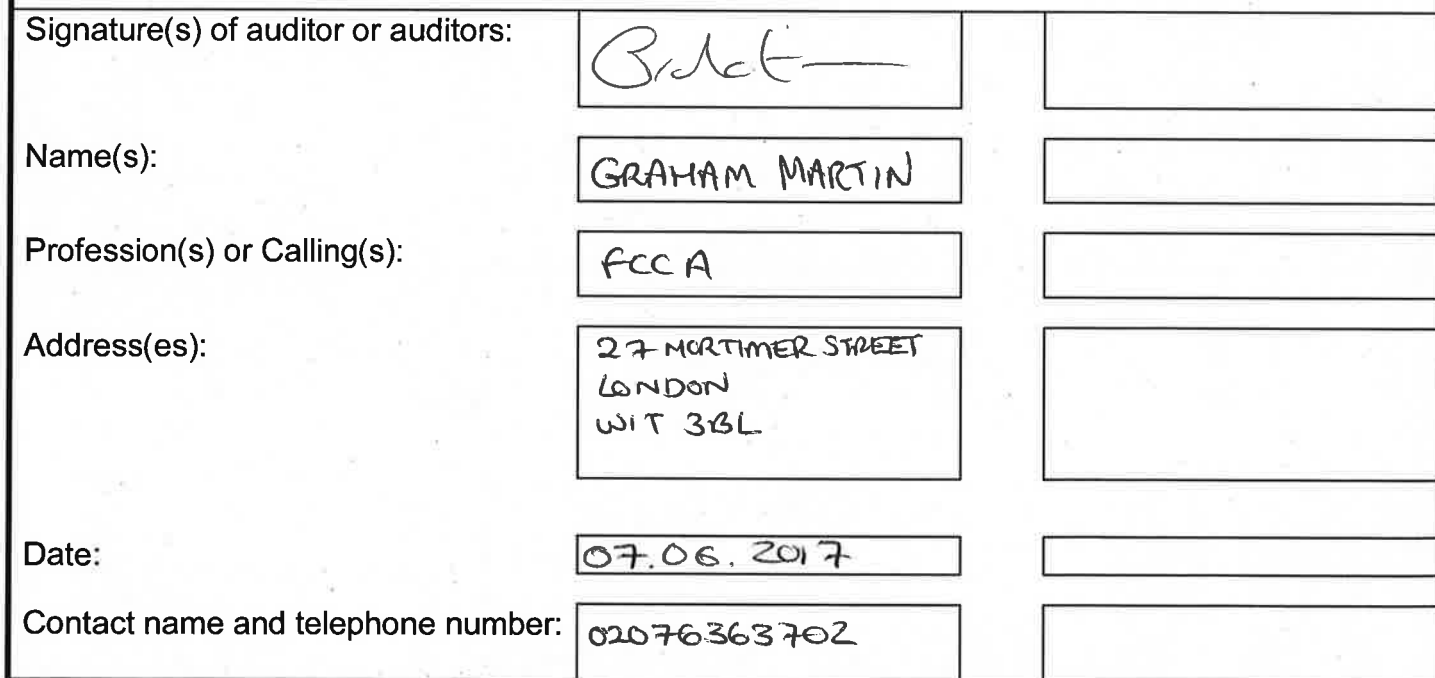 Signature(s) of auditor or auditors:
Name(s):
GRAHAM MARTIN
Profession(s) or Calling(s):
FCCA
Address(es):
27 MORTIMER STREET
LONDON
W1T 3BL
Date:
07.06.2017
Contact name and telephone number:
02076363702